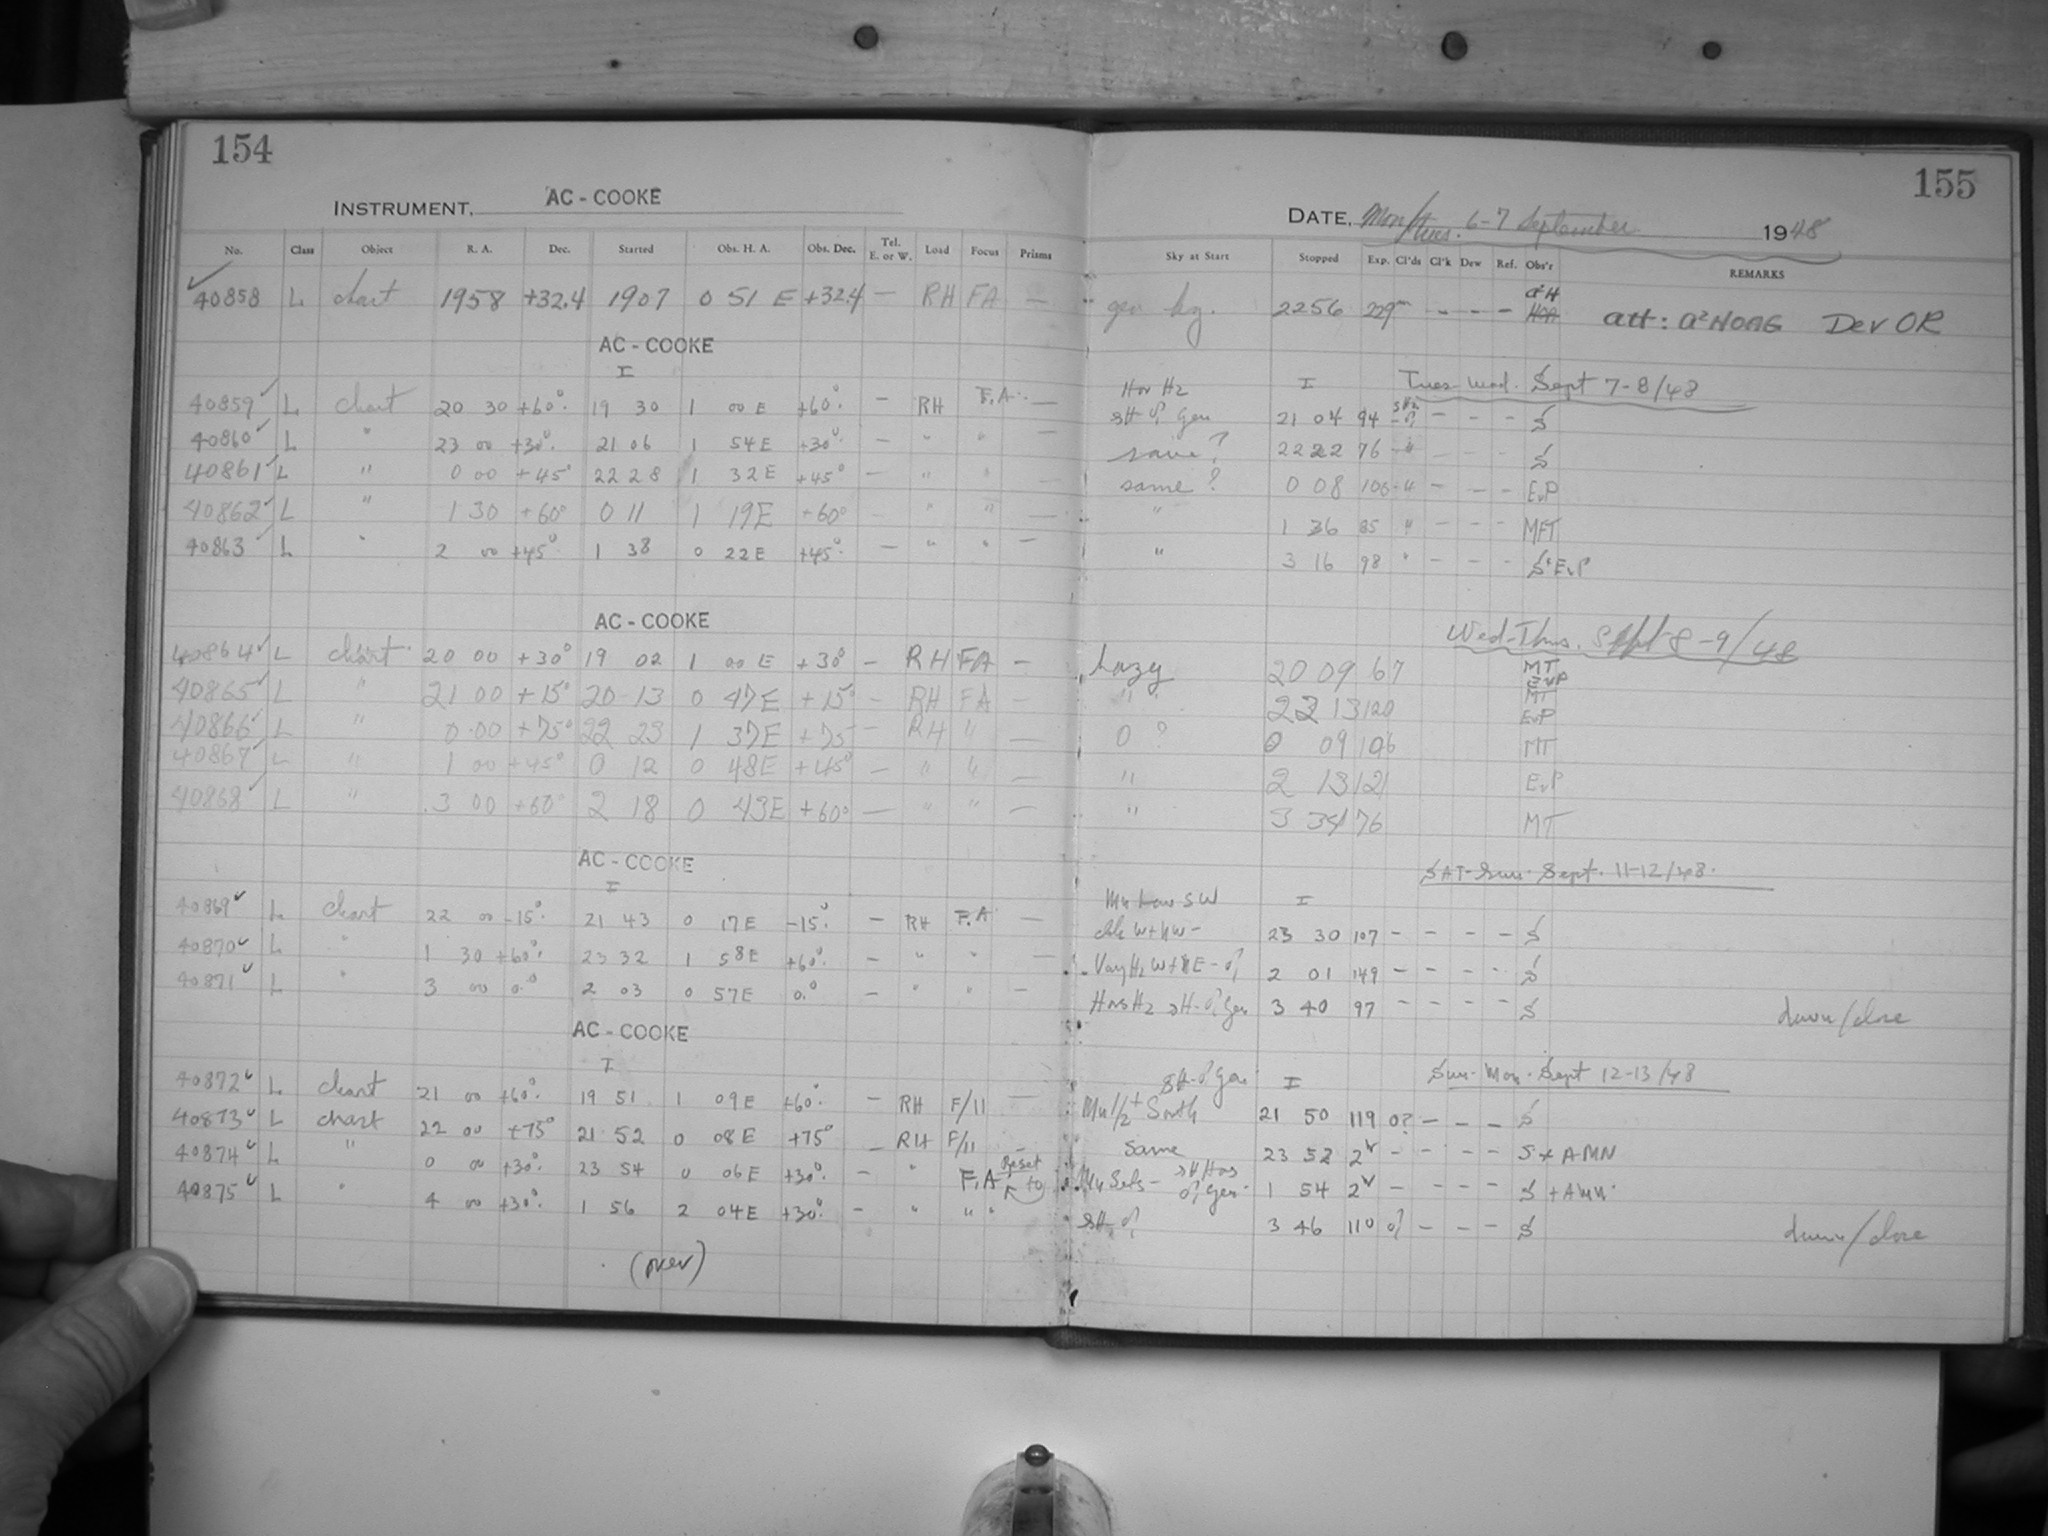 154
INSTRUMENT, AC - COOKE
No. Class Object R. A. Dec. Started Obs. H. A. Obs. Dec. Tel. E. or W. Load Focus Prisms
40858 L chart 1958 +32.4 1907 0 51 E +32.4 – RH FA –
AC - COOKE
I
40859 L chart 20 30 +60° 19 30 1 00 E +60° – RH F.A. –
40860 L " 23 00 +30° 21 06 1 54 E +30° – " " –
40861 L " 0 00 +45° 22 28 1 32 E +45° – " " –
40862 L " 1 30 +60° 0 11 1 19 E +60° – " " –
40863 L " 2 00 +45° 1 38 0 22 E +45° – " " –
AC - COOKE
40864 L chart 20 00 +30° 19 02 1 00 E +30° – RH FA –
40865 L " 21 00 +15° 20 13 0 47 E +15° – RH FA –
40866 L " 0 00 +75° 22 23 1 37 E +75 – RH " –
40867 L " 1 00 +45° 0 12 0 48 E +45° – " " –
40868 L " 3 00 +60° 2 18 0 43 E +60° – " " –
AC - COOKE
I
40869 L chart 22 00 -15° 21 43 0 17 E -15° – RH F.A –
40870 L " 1 30 +60° 23 32 1 58 E +60° – " " –
40871 L " 3 00 0° 2 03 0 57 E 0° – " " –
AC - COOKE
I
40872 L chart 21 00 +60° 19 51 1 09 E +60° – RH F/11 –
40873 L chart 22 00 +75° 21 52 0 08 E +75° – RH F/11
40874 L " 0 00 +30° 23 54 0 06 E +30° – " F.A Reset to
40875 L " 4 00 +30° 1 56 2 04 E +30° – " " "
(over)
155
DATE, Mon/Tues. 6-7 September 1948
Sky at Start Stopped Exp. Cl'ds Cl'k Dew Ref. Obs'r REMARKS
gen hz. 2256 229m – – – att: a²HOAG Dev OR
Tues-Wed. Sept 7-8/48
Hor Hz I
gen 21 04 94 – – – S
same? 22 22 76 " – – – S
same? 0 08 106 " – – – EvP
" 1 36 85 " – – – MFT
" 3 16 98 " – – – S+EvP
Wed-Thus. Sept 8-9/48
hazy 20 09 67 MT EvP
" 22 13 120 MT EvP
0 ? 0 09 106 MT
" 2 13 121 EvP
" 3 34 76 MT
SAT-Sun. Sept. 11-12/48.
Mn Low SW I
W+NW – 23 30 107 – – – – S
Hz 2 01 149 – – – – S
Hors Hz gen 3 40 97 – – – – S down/close
Sun-Mon. Sept 12-13/48
gen I
Mn 1/2+ South 21 50 119 0? – – – S
Same 23 52 2h – – – – S + AMN
Mn Sets – gen 1 54 2h – – – – S + AMN
3 46 110 – – – S down/close